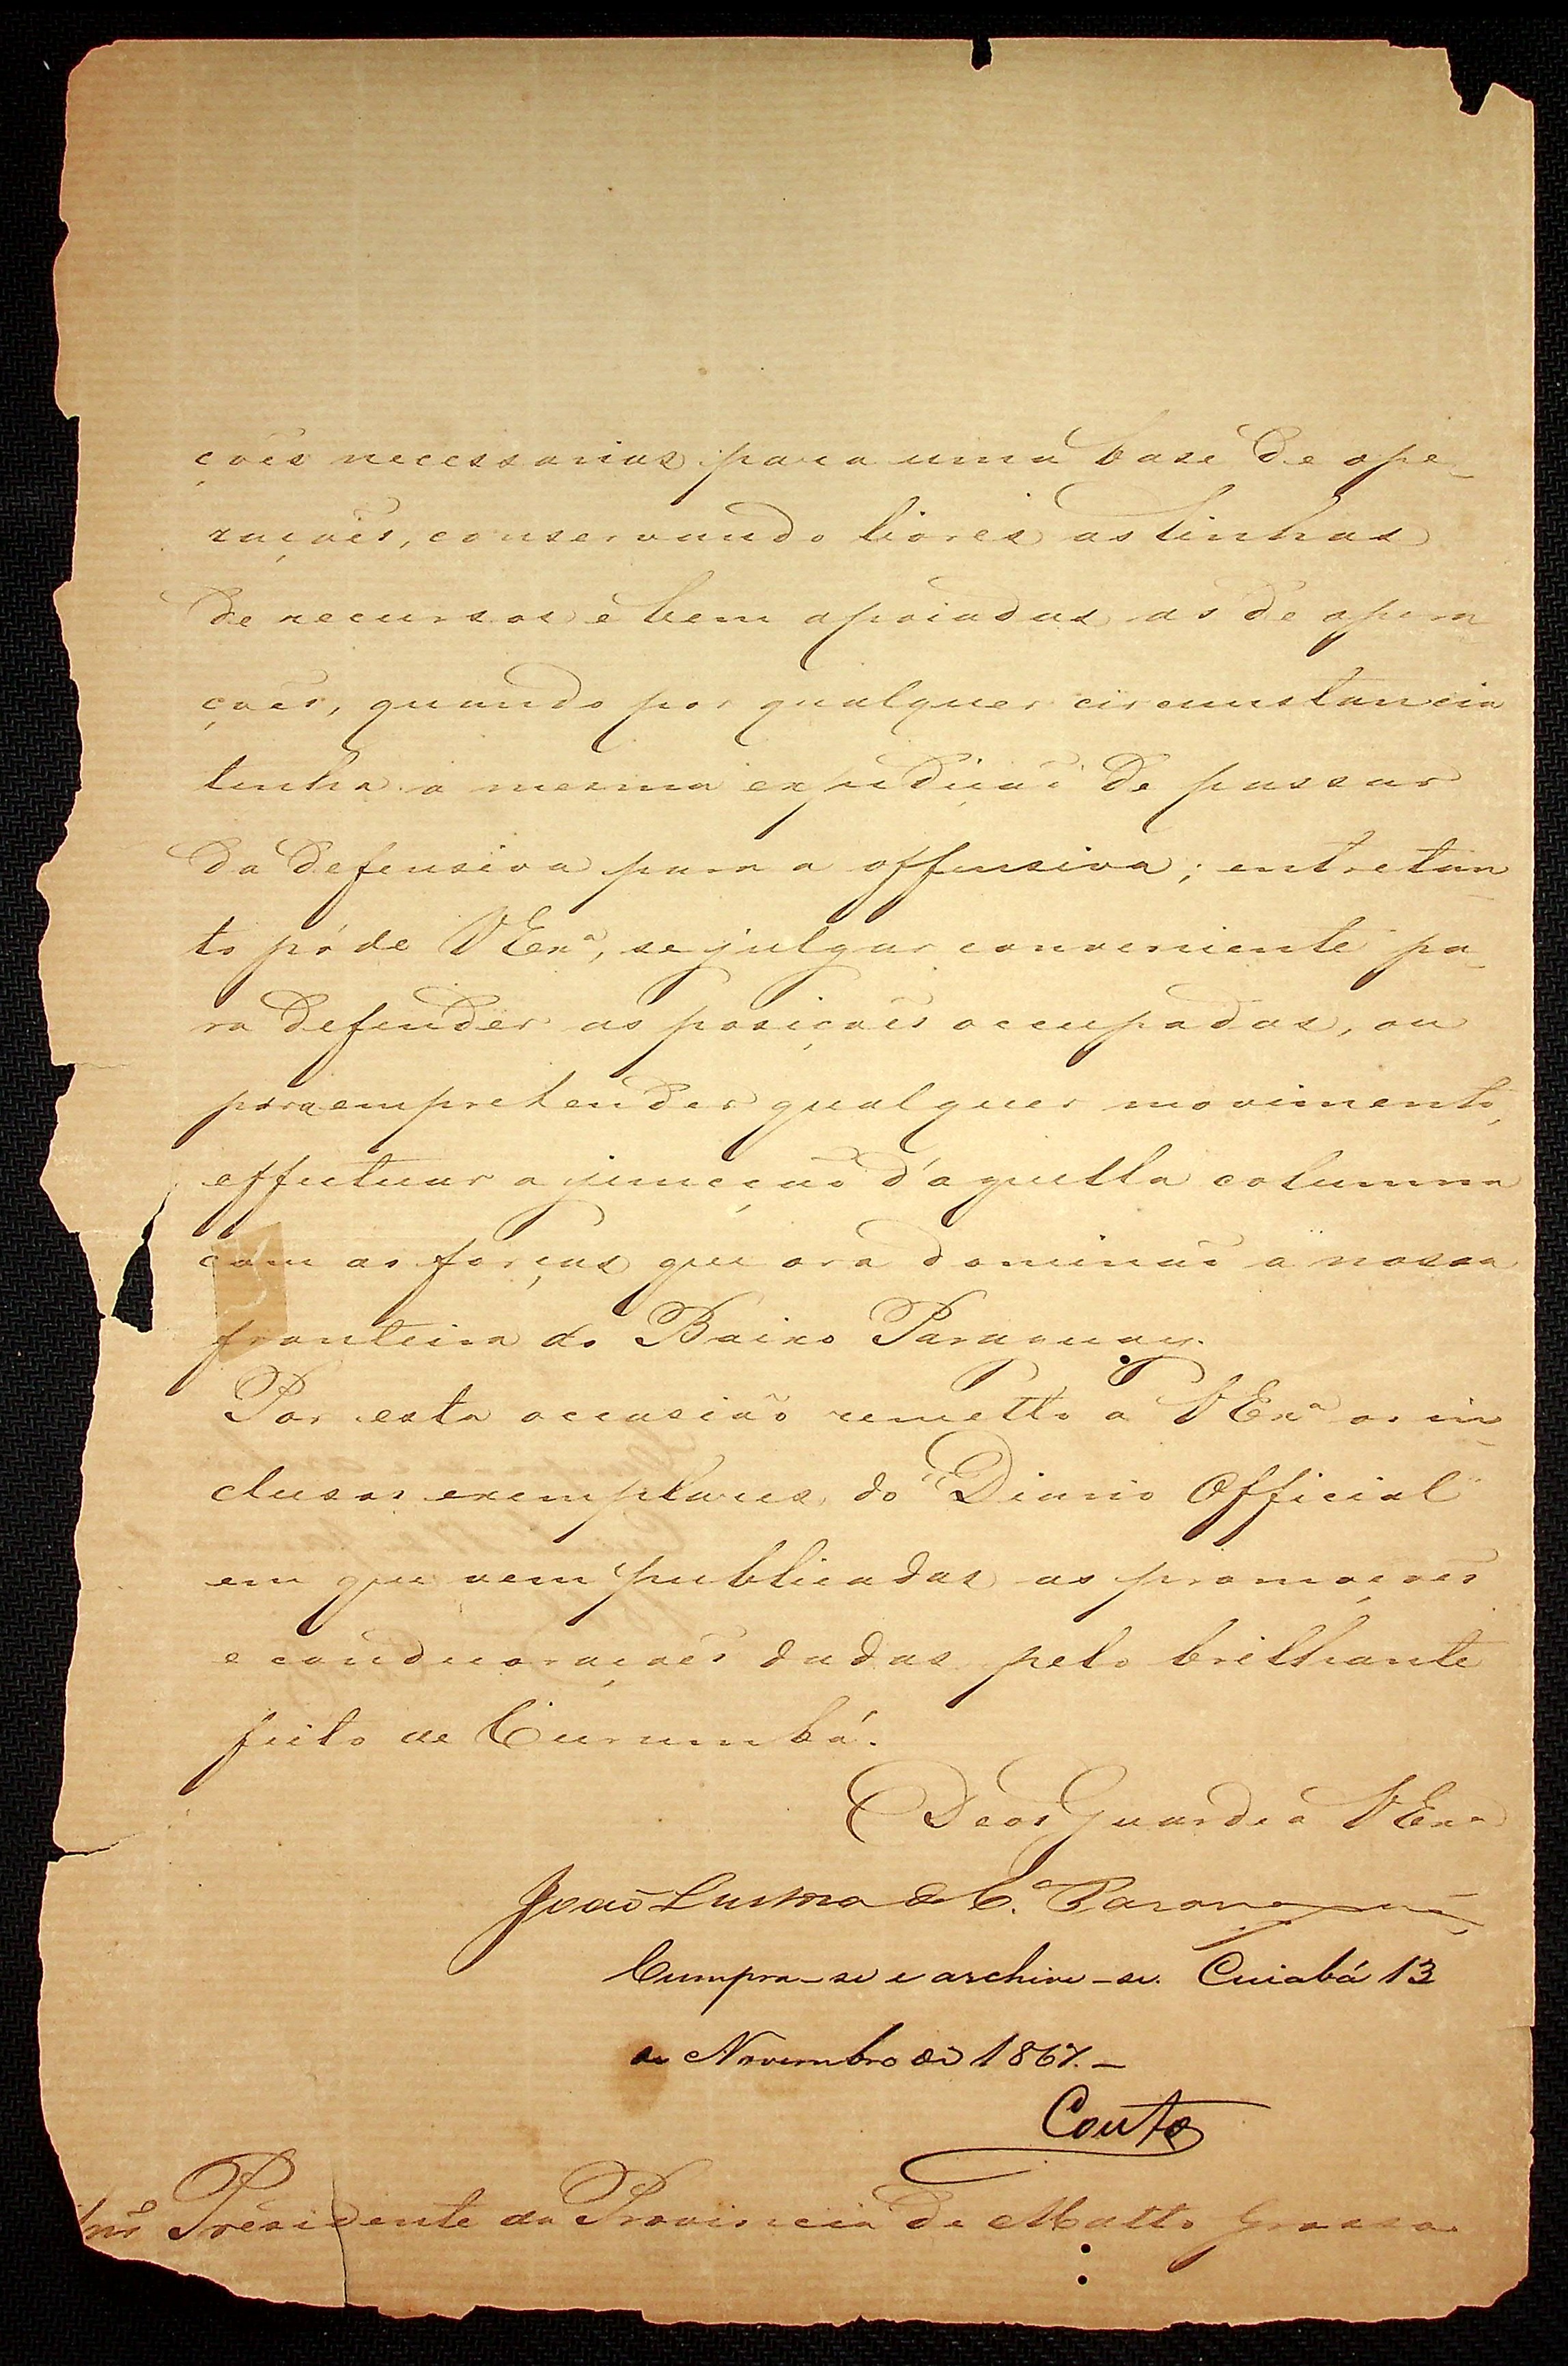 ções necessarias para uma base de ope-
rações, conservando livres as linhas
de recursos e bem apoiadas as de opera
ções, quando por qualquer circumstancia
tenha a mesma expedição de passar
da defensiva para a offensiva; entretan-
to póde VExª, se julgar conveniente pa-
ra defender as posições occupadas, ou
para emprehender qualquer movimento,
effectuar a juncção d'aquella columna
com as forças que ora dominão a nossa
fronteira do Baixo Paraguay.
Por esta occasião remetto a VExª os in-
clusos exemplares do "Diario Official"
em que vem publicadas as promoções
e condecorações dadas pelo brilhante
feito de Curumbá.
Deos Guarde a VExª
João Lustosa da Cª Paranaguá
Cumpra-se e archive-se. Cuiabá 13
de Novembro de 1867.-
Couto
Presidente da Provincia de Matto Grosso